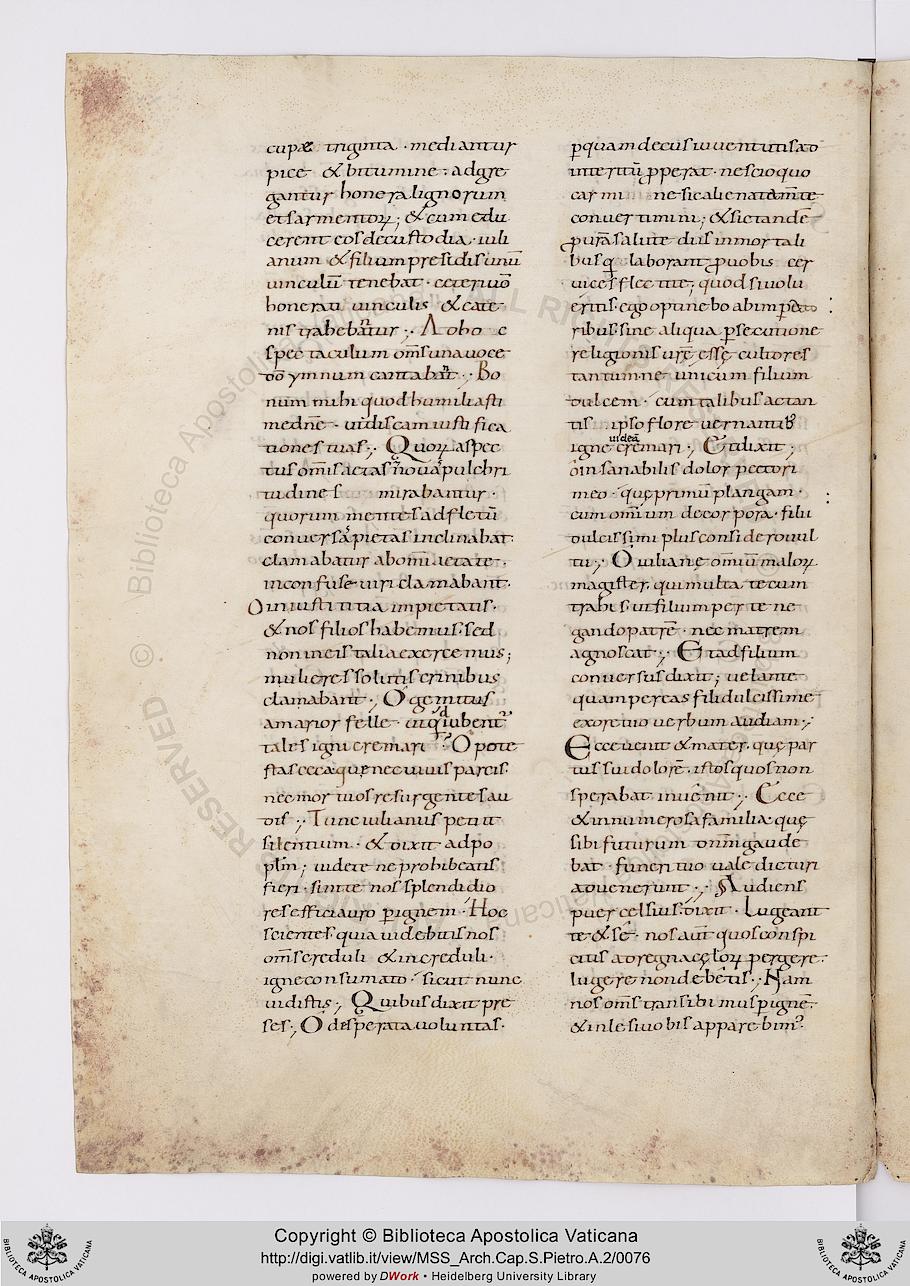 cupæ triginta · mediantur
pice · & bitumine · adgre
gantur honera lignorum
et sarmentoꝝ; & cum edu
cerent eos de custodia · iuli
anum & filium presidis unū
uinculū tenebat · ceteri uō
honerati uinculis & cate
nis trahebant̄ur ·,· Ad hoc
spectaculum om̄s una uoce
dō ymnum cantabant ·,· Bo
num mihi quod humiliasti
me dn̄e · ut discam iustifica
tiones tuas ·,· Quoꝝ aspec
tus om̄is aetas
tudines mirabantur ·
quorum mentes ad fletū
conuersa pietas inclinabat·
clamabatur ab om̄i aetate ·
inconfuse uiri clamabant ·
O iniustititiā impietatis ·
& nos filios habemus · sed
non in eis talia exercemus;
mulieres solutis crinibus
clamabant ·, O gemitus
amarior felle · ut quid iubent̄
tales igni cremari · O pote
stas ceca quę nec uiuis parcis·
nec mortuos resurgentes au
dis ·,· Tunc iulianus petiit
silentium · & dixit ad po
plm̄; uidete ne prohibeatis
fieri · sinite nos splendidio
res effici auro ꝑ ignem · Hoc
scientes · quia uidebitis nos
om̄s creduli & increduli ·
igne consumato · sicut nunc
uidistis ·, Quibus dixit pre
ses ·, O desperata uoluntas ·
ꝑquam decus iuuentutis ad
interitū ꝓperat · nescio quo
car mi ne sic alienata m̄te
conuertimini; & sic tandē
ꝓ ur̄a salute diis inmortali
bus qui laborant ꝓ uobis cer
uices flectite · quod si uolu
eritis · ego optinebo ab imperato
ribus · sine aliqua ꝑsecutione
religionis ur̄ę essę cultores
tantum ne unicum filium
dulcem · cum talibus aetan
tis · ipso flore uernantib;
igne uideā cremari ·, Et dixit ;
o insanabilis dolor pectori
meo · quę primū plangam ·
cum omnium decor pora · fili
dulcissimi plus considero uul
tū ·, O iuliane omniū maloꝝ
magister, qui multa tecum
trahis · ut filium per te ne
gando patrē · nec matrem
agnoscat ·,· Et ad filium
conuersus dixit ; uel ante
quam pereas fili dulcissime
ex ore tuo uerbum audiam ·,·
Ecce uenit & mater, quę par
tus sui dolorē · istos quos non
sperabat inuēnit ·,· Ecce
& innumerosa familia quę
sibi futurum dn̄m gaude
bat · funeri tuo uale dicturi
aduenerunt ·,· Audiens
puer celsus · dixit · Lugeant
te & sē · nos aūt quos conspi
cius ad regna cęloꝝ pergere ·
lugere non debētis ·,· Nam
nos om̄s transibimus ꝑ ignē ·
& inlesi uobis apparebimꝰ
Copyright © Biblioteca Apostolica Vaticana
http://digi.vatlib.it/view/MSS_Arch.Cap.S.Pietro.A.2/0076
powered by DWork • Heidelberg University Library